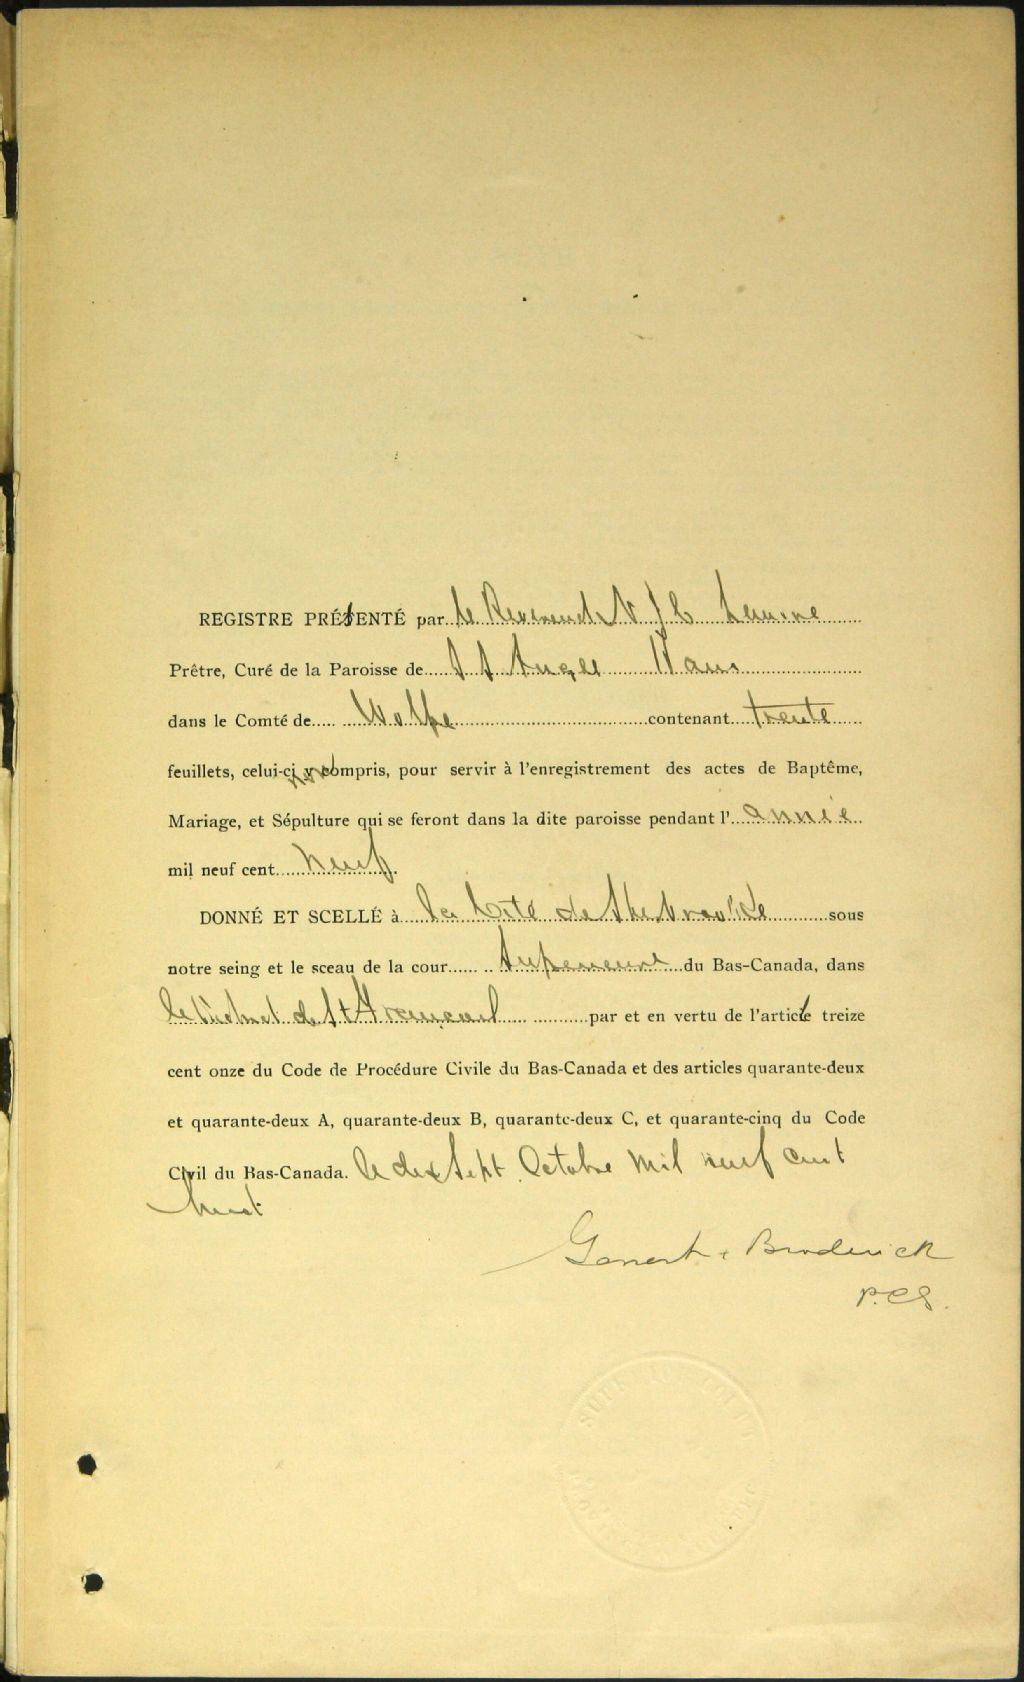 REGISTRE PRÉSENTÉ par le Reverend N J C Lemire
Prêtre, Curé de la Paroisse de S S Anges Ham
dans le Comté de Wolfe contenant trente
feuillets, celui-ci non compris, pour servir à l'enregistrement des actes de Baptême,
Mariage, et Sépulture qui se feront dans la dite paroisse pendant l'année
mil neuf cent neuf.
DONNÉ ET SCELLÉ à la Cité de Sherbrooke sous
notre seing et le sceau de la cour Superieure du Bas-Canada, dans
le District de St Francois par et en vertu de l'article treize
cent onze du Code de Procédure Civile du Bas-Canada et des articles quarante-deux
et quarante-deux A, quarante-deux B, quarante-deux C, et quarante-cinq du Code
Civil du Bas-Canada. le dix Sept Octobre mil neuf cent
huit
Broderick
P.C.S.